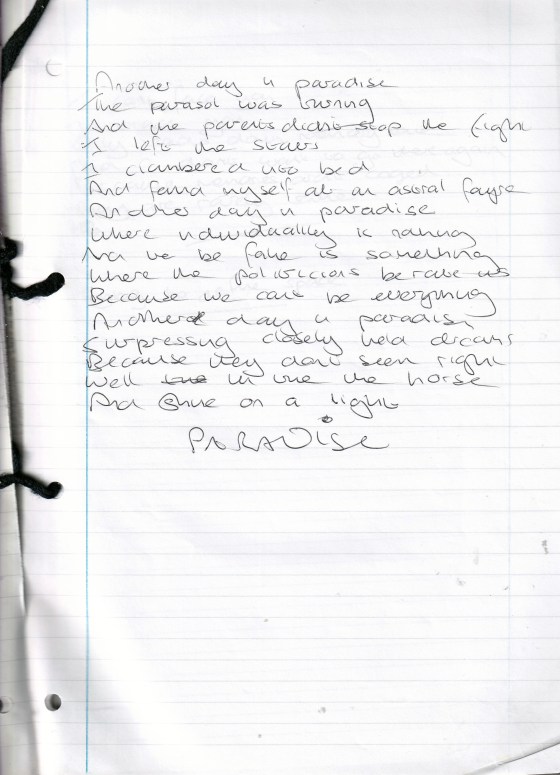 Another day in paradise
The parasol was turning
And the parents didn't stop the fight
I left the stairs
I clambered into bed
And found myself at an astral fayre
Another day in paradise
Where individuality is nothing
And be fake is something
Where the politicians berate us
Because we can't be everything
Another day in paradise
Surpressing closely held dreams
Because they don't seem right
Well the horse
And shine on a light
PARADISE